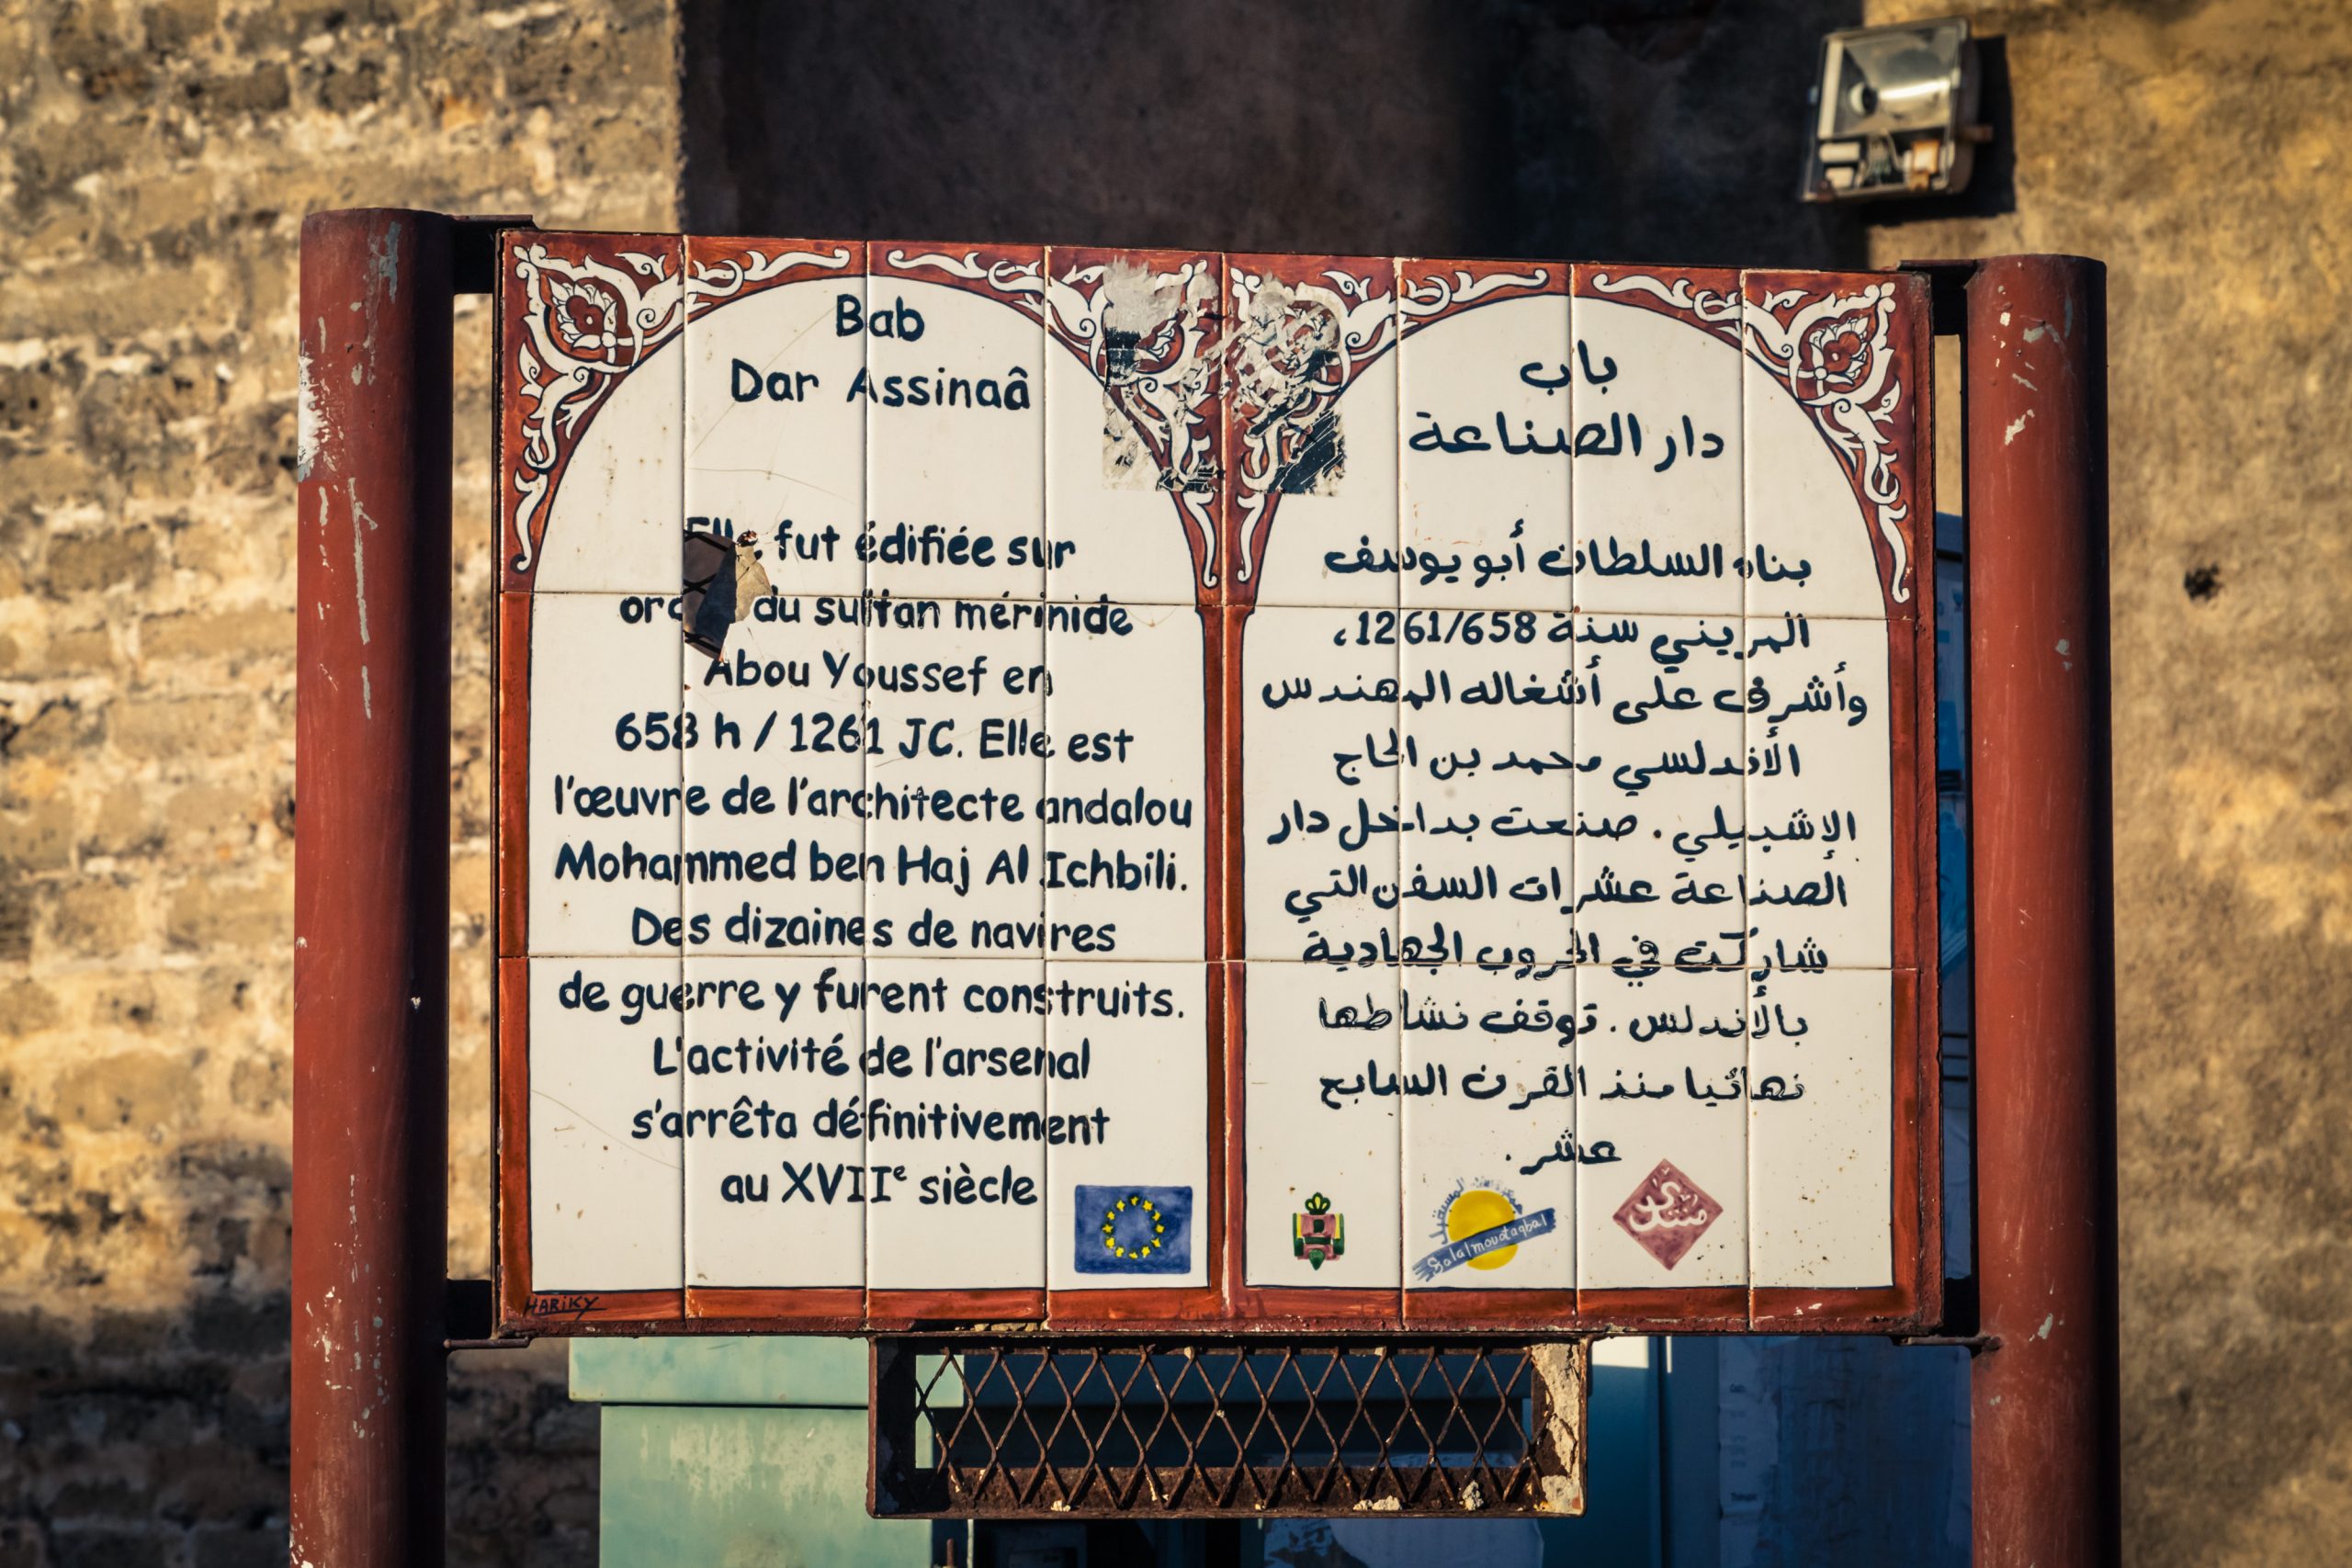 Bab
Dar Assinaâ
Elle fut édifiée sur
du sultan mérinide
Abou Youssef en
658 h / 1261 JC. Elle est
l'œuvre de l'architecte andalou
Mohammed ben Haj Al Ichbili.
Des dizaines de navires
de guerre y furent construits.
L'activité de l'arsenal
s'arrêta définitivement
au XVIIe siècle
HARIKY
باب
دار الصناعة
بناه السلطان أبو يوسف
المريني سنة 1261/658،
وأشرف على أشغاله المهندس
الأندلسي محمد بن الحاج
الإشبيلي. صنعت بداخل دار
الصناعة عشرات السفن التي
شاركت في الحروب الجهادية
بالأندلس. توقف نشاطها
نهائيا منذ القرن السابع
عشر.
Salalmoustaqbal